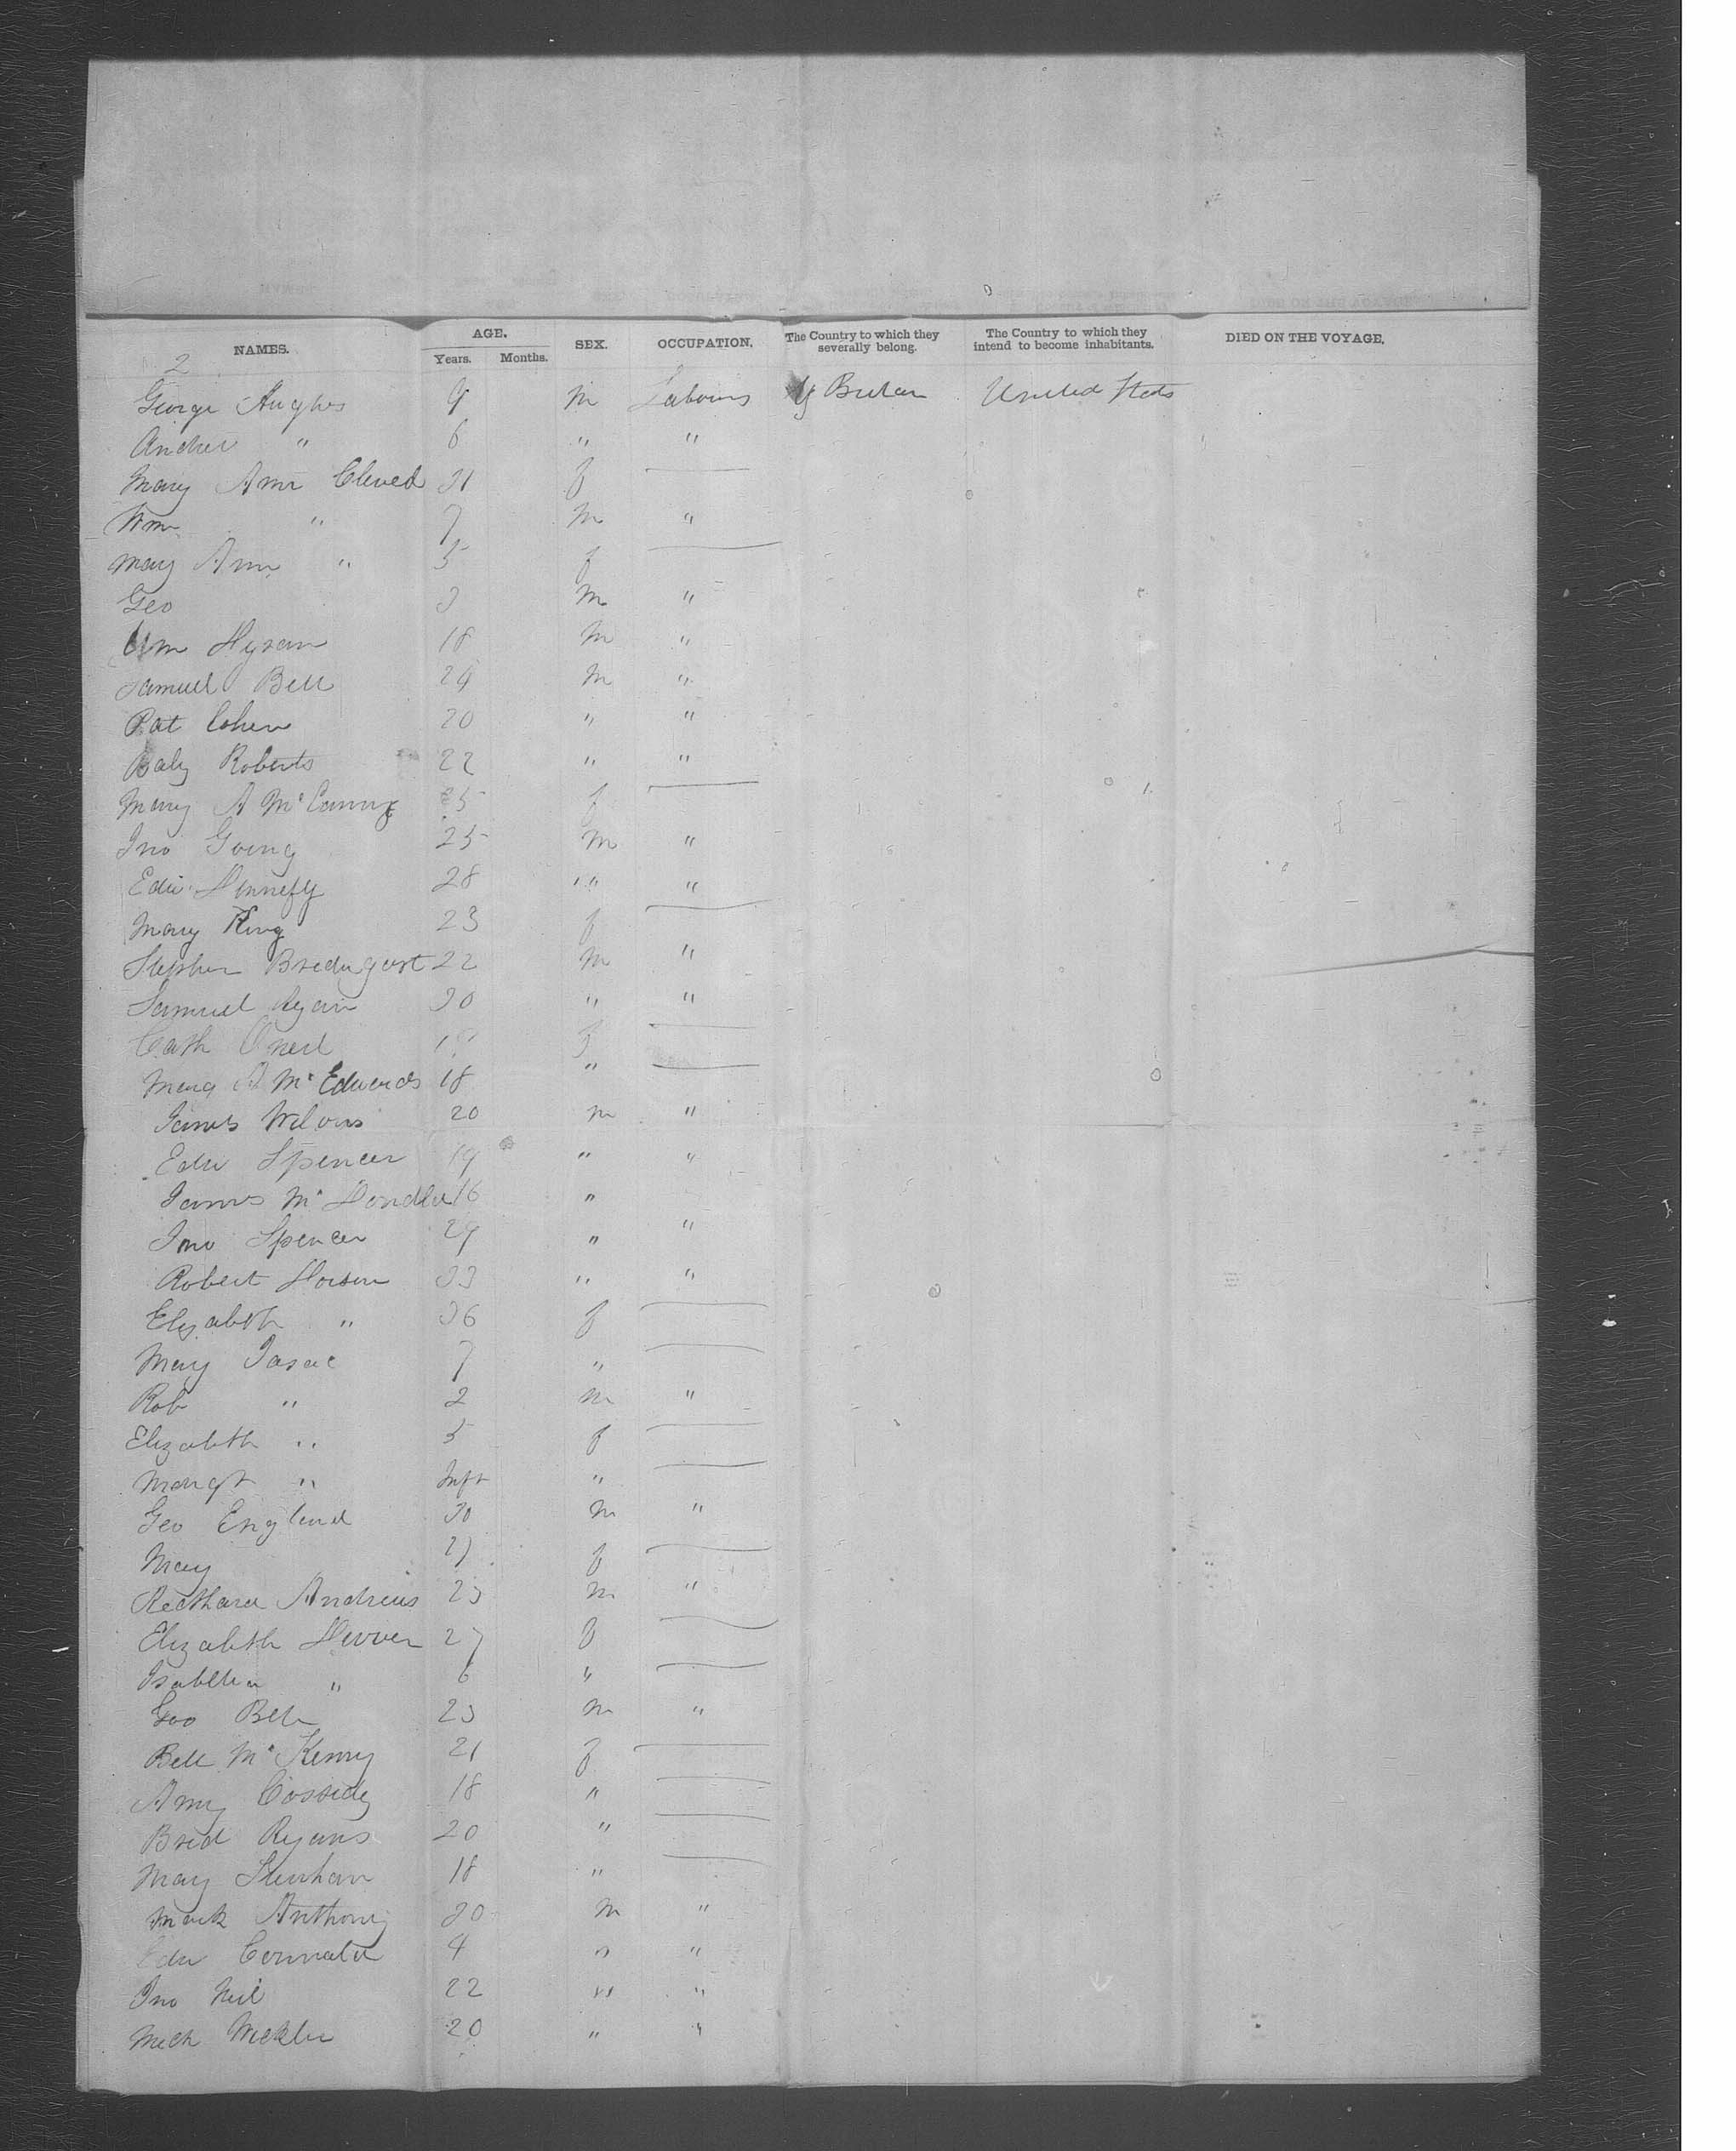 NAMES. AGE. Years. Months. SEX. OCCUPATION. The Country to which they severally belong. The Country to which they intend to become inhabitants. DIED ON THE VOYAGE.
2
George Hughes 9 m Labours G Britan United Stats
Andrew " 6 " "
Mary Ann Cleved 31 f
Wm " 7 m "
Mary Ann " 5 f
Geo 3 m "
Wm Hysam 18 m "
Samuel Bell 24 m "
Pat Cohen 20 " "
Roberts 22 " "
Mary A 25 f
Jno Going 25 m "
Edw 28 " "
Mary King 23 f
Stephen 22 m "
Samuel Ryan 30 " "
Cath Oneil f
Mary A McEdwards 18 "
James 20 m "
Edw Spencer 19 " "
James 16 "
Jno Spencer 29 " "
Robert 33 " "
Elizabeth " 36 f
Mary Isaac 7 "
Rob " 2 m "
Elizabeth " 5 f
Margt " Inft "
Geo England 30 m "
Mary 27 f
Andrews 23 m "
Elizabeth 27 f
Isabella " 6 "
Geo Bell 23 m "
Bell McKenny 21 f
Amy Cassidy 18 "
Brid Ryans 20 "
Mary 18 "
Mark Anthony 20 m "
Edw 4 " "
Jno Neil 22 " "
Mich 20 " "